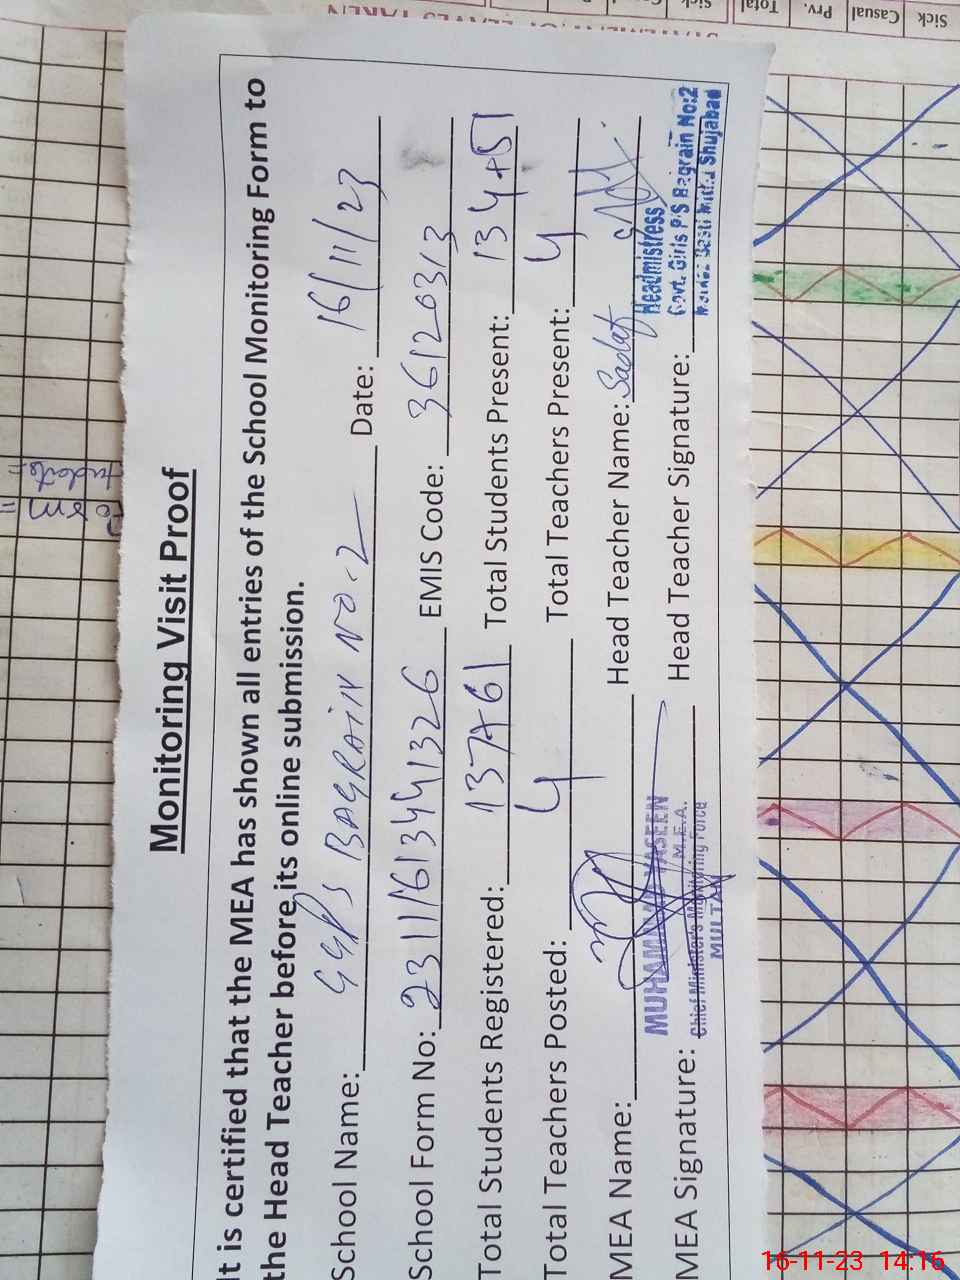 Monitoring Visit Proof
It is certified that the MEA has shown all entries of the School Monitoring Form to
the Head Teacher before its online submission.
School Name: GGPS BAGRAIN NO.2 Date: 16/11/23
School Form No: 23111613441326 EMIS Code: 36120313
Total Students Registered: 137+61 Total Students Present: 134+51
Total Teachers Posted: 4 Total Teachers Present: 4
MEA Name: Head Teacher Name: Sadaf
MEA Signature: Head Teacher Signature:
MUHAMMAD YASEEN
M.E.A.
Chief Minister's Monitoring Force
MULTAN
Headmistress
Govt. Girls P/S Bagrain No:2
Shujabad
Sick Casual Prv. Total Sick
16-11-23 14:16